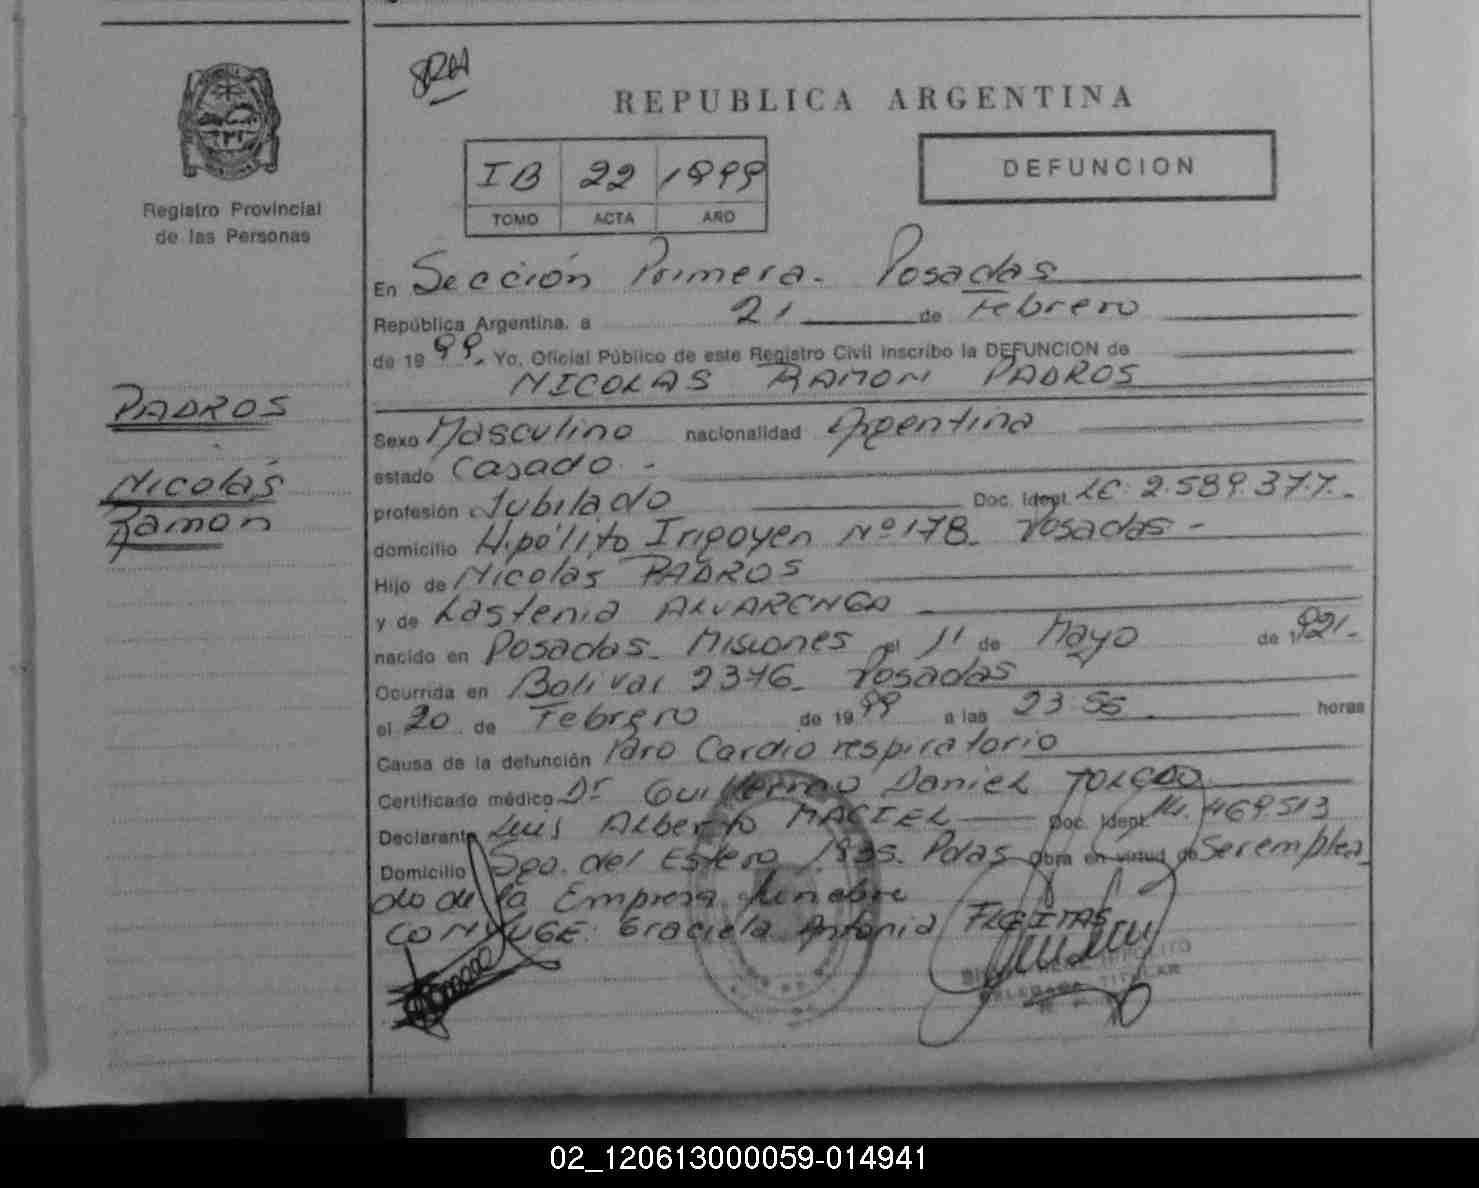 REPUBLICA ARGENTINA
IB 22 1999
TOMO ACTA AÑO
DEFUNCION
Registro Provincial
de las Personas
PADROS
Nicolás
Ramon
En Sección Primera. Posadas
República Argentina, a 21 de Febrero
de 1999. Yo, Oficial Público de este Registro Civil inscribo la DEFUNCION de
NICOLAS RAMON PADROS
Sexo Masculino nacionalidad Argentina
estado Casado. -
profesión Jubilado Doc. Ident. LE. 2.589.377. -
domicilio Hipólito Irigoyen Nº 178. Posadas -
Hijo de Nicolás PADROS
y de Lastenia ALVARENGA
nacido en Posadas. Misiones el 11 de Mayo de 1921.
Ocurrida en Bolivar 2376. Posadas
el 20 de Febrero de 1999 a las 23:55 horas
Causa de la defunción Paro Cardio respiratorio
Certificado médico Dr Guillermo Daniel TOLEDO
Declarante Luis Alberto MACIEL Doc. Ident.
Domicilio Sgo. del Estero Pdas Obra en virtud de Ser emplea
do de la Empresa fúnebre
CONYUGE: Graciela Antonia FLEITAS
TITULAR
02_120613000059-014941